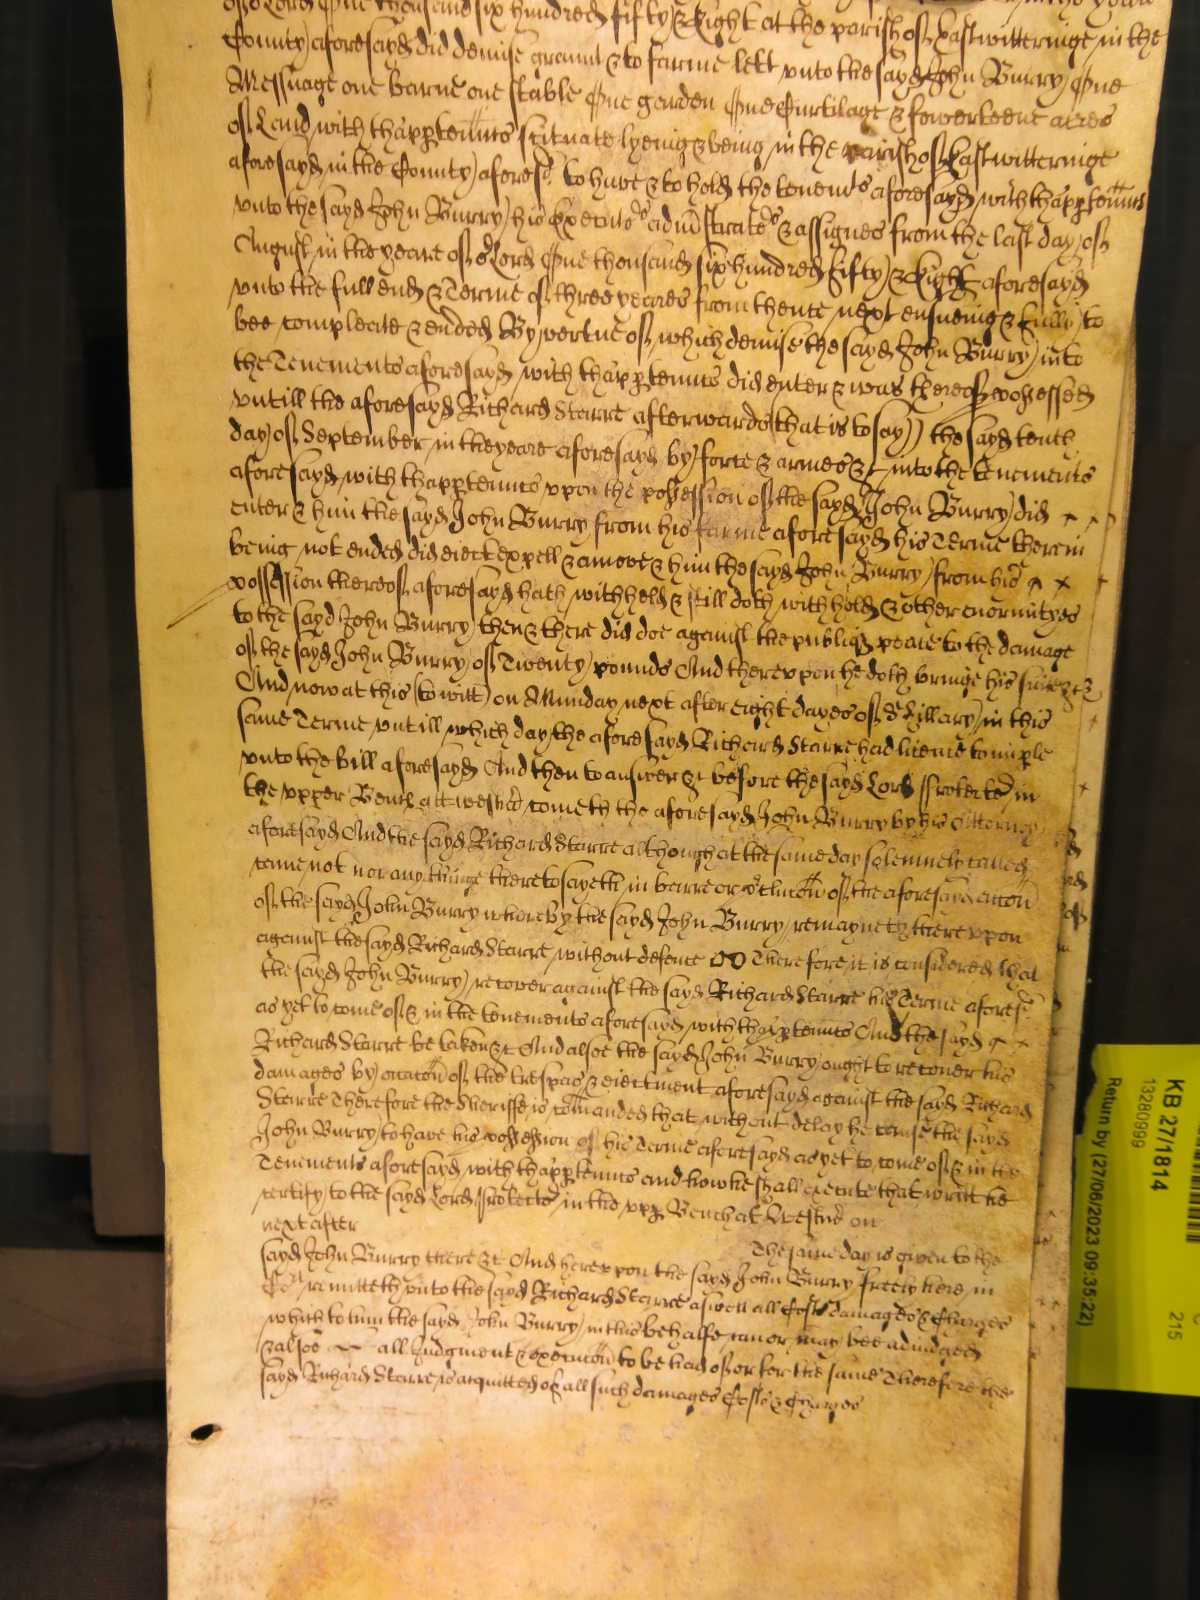 of or Lord One thousand six hundred fifty & Eight at the parish of Eastwitteringe in the
County aforesayd did demise graunt & to farme lett unto the sayd John Burry One
Messuage one barne one stable One garden One Curtilage & fowerteene acres
of Land with thapptennts scituate lyeing & being in the parish of Eastwitteringe
aforesayd in the County aforesd. to have & to hold the tenemts aforesayd with thapptennts
unto the sayd John Burry his Executrs administratrs & assignes from the last day of
August in the yeare of or Lord One thousand six hundred fifty & Eight aforesayd
unto the full end & Terme of three yeares from thence next ensueing & fully to
bee compleate & ended By vertue of which demise the sayd John Burry into
the Tenements aforesayd with thapptennts did enter & was thereof possessed
untill the aforesayd Richard Starre afterwards (that is to say) the sayd tenth
day of September in the yeare aforesayd by force & armes &c into the tenements
aforesayd with thapptennts upon the possession of the sayd John Burry did
enter & him the sayd John Burry from his farme aforesayd his Terme therein
being not ended did eiect expell & amove & him the sayd John Burry from his
possession thereof aforesayd hath withheld & still doth withhold & other enormityes
to the sayd John Burry then & there did doe against the publiq peace to the damage
of the sayd John Burry of Twenty pounds And thereupon he doth bringe his suite &c
And now at this (to witt) on Munday next after eight dayes of St Hillary in this
same Terme untill which day the aforesayd Richard Starre had licence to imple
unto the bill aforesayd And then to answer &c before the sayd Lord Protector in
the upper Bench att westmr cometh the aforesayd John Burry by his Attorney
aforesayd And the sayd Richard Starre although at the same day solemnely called
come not nor any thinge thereto sayeth in barre or preclucon of the aforesayd accon
of the sayd John Burry whereby the sayd John Burry remayneth thereupon
against the sayd Richard Starre without defence Therefore it is considered that
the sayd John Burry recover against the sayd Richard Starre his Terme aforesd
as yet to come of & in the tenements aforesayd with thapptennts And the sayd
Richard Starre be taken &c And alsoe the sayd John Burry ought to recover his
damages by occacon of the trespas & eiectment aforesayd against the sayd Richard
Starre Therefore the Sheriffe is comanded that without delay he cause the sayd
John Burry to have his possession of his Terme aforesayd as yet to come of & in the
Tenements aforesayd with thapptennts and how he shall execute that writt he
certify to the sayd Lord Protector in the uppr Bench at Westmr on
next after The same day is given to the
sayd John Burry there &c And hereupon the sayd John Burry freely here in
Cort remitteth unto the sayd Richard Starre aswell all Costs damages & Charges
which to him the sayd John Burry in this behalfe can or may bee adiudged
& alsoe all Judgment & execucon to be had of or for the same Therefore the
sayd Richard Starre is acquitted of all such damages Costs & Charges
KB 27/1814
13280999
Return by (27/06/2023 09:35:22)
215